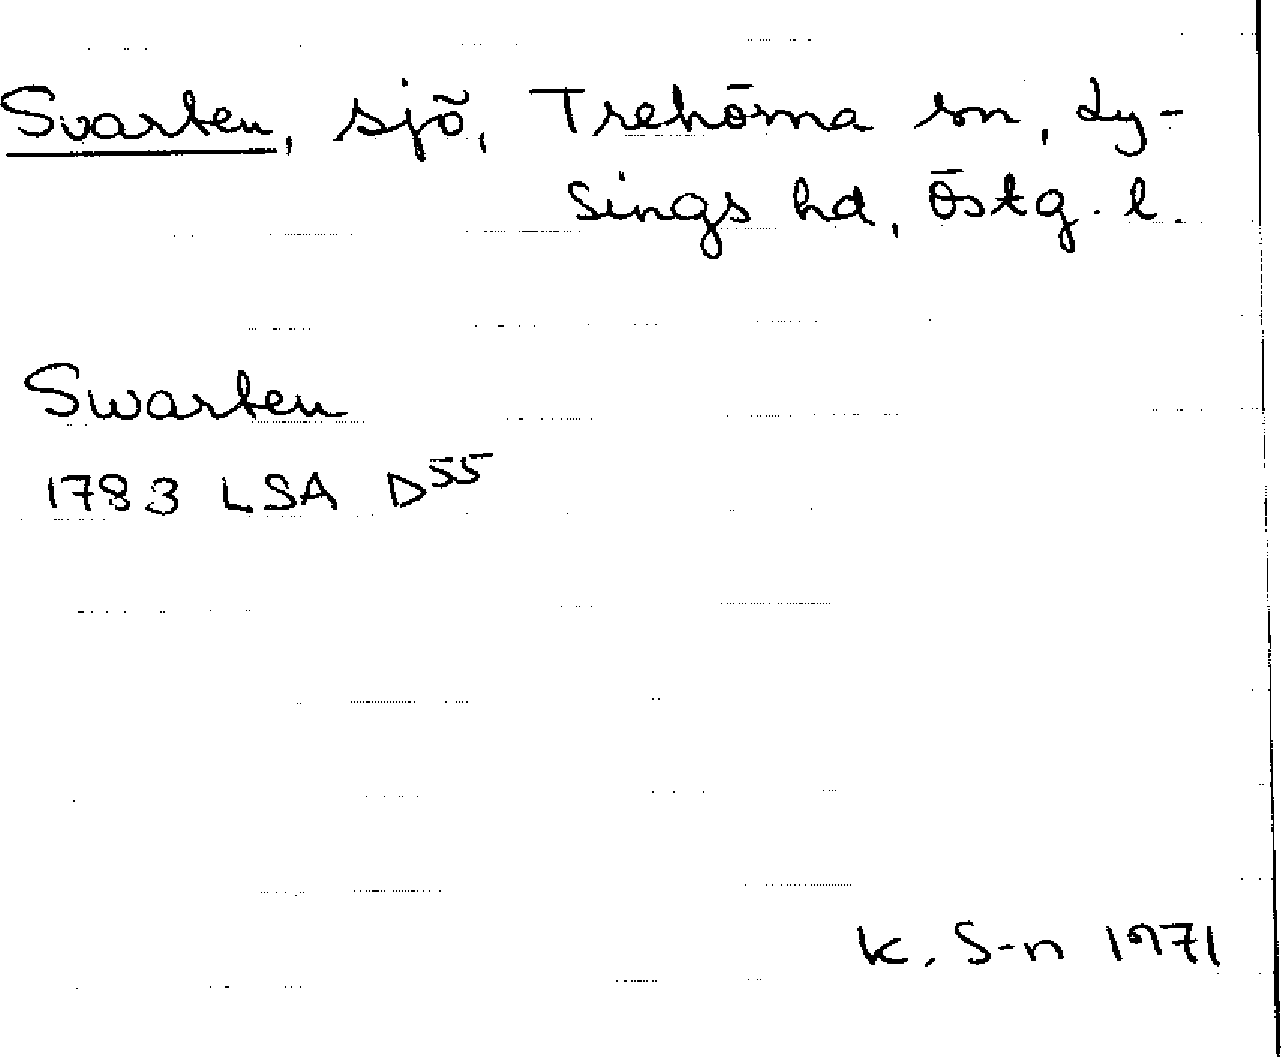 Svarten, sjö, Trehörna sn, Ly-
sings hd, Östg. l.
Swarten
1783 LSA D55
K. S-n 1971